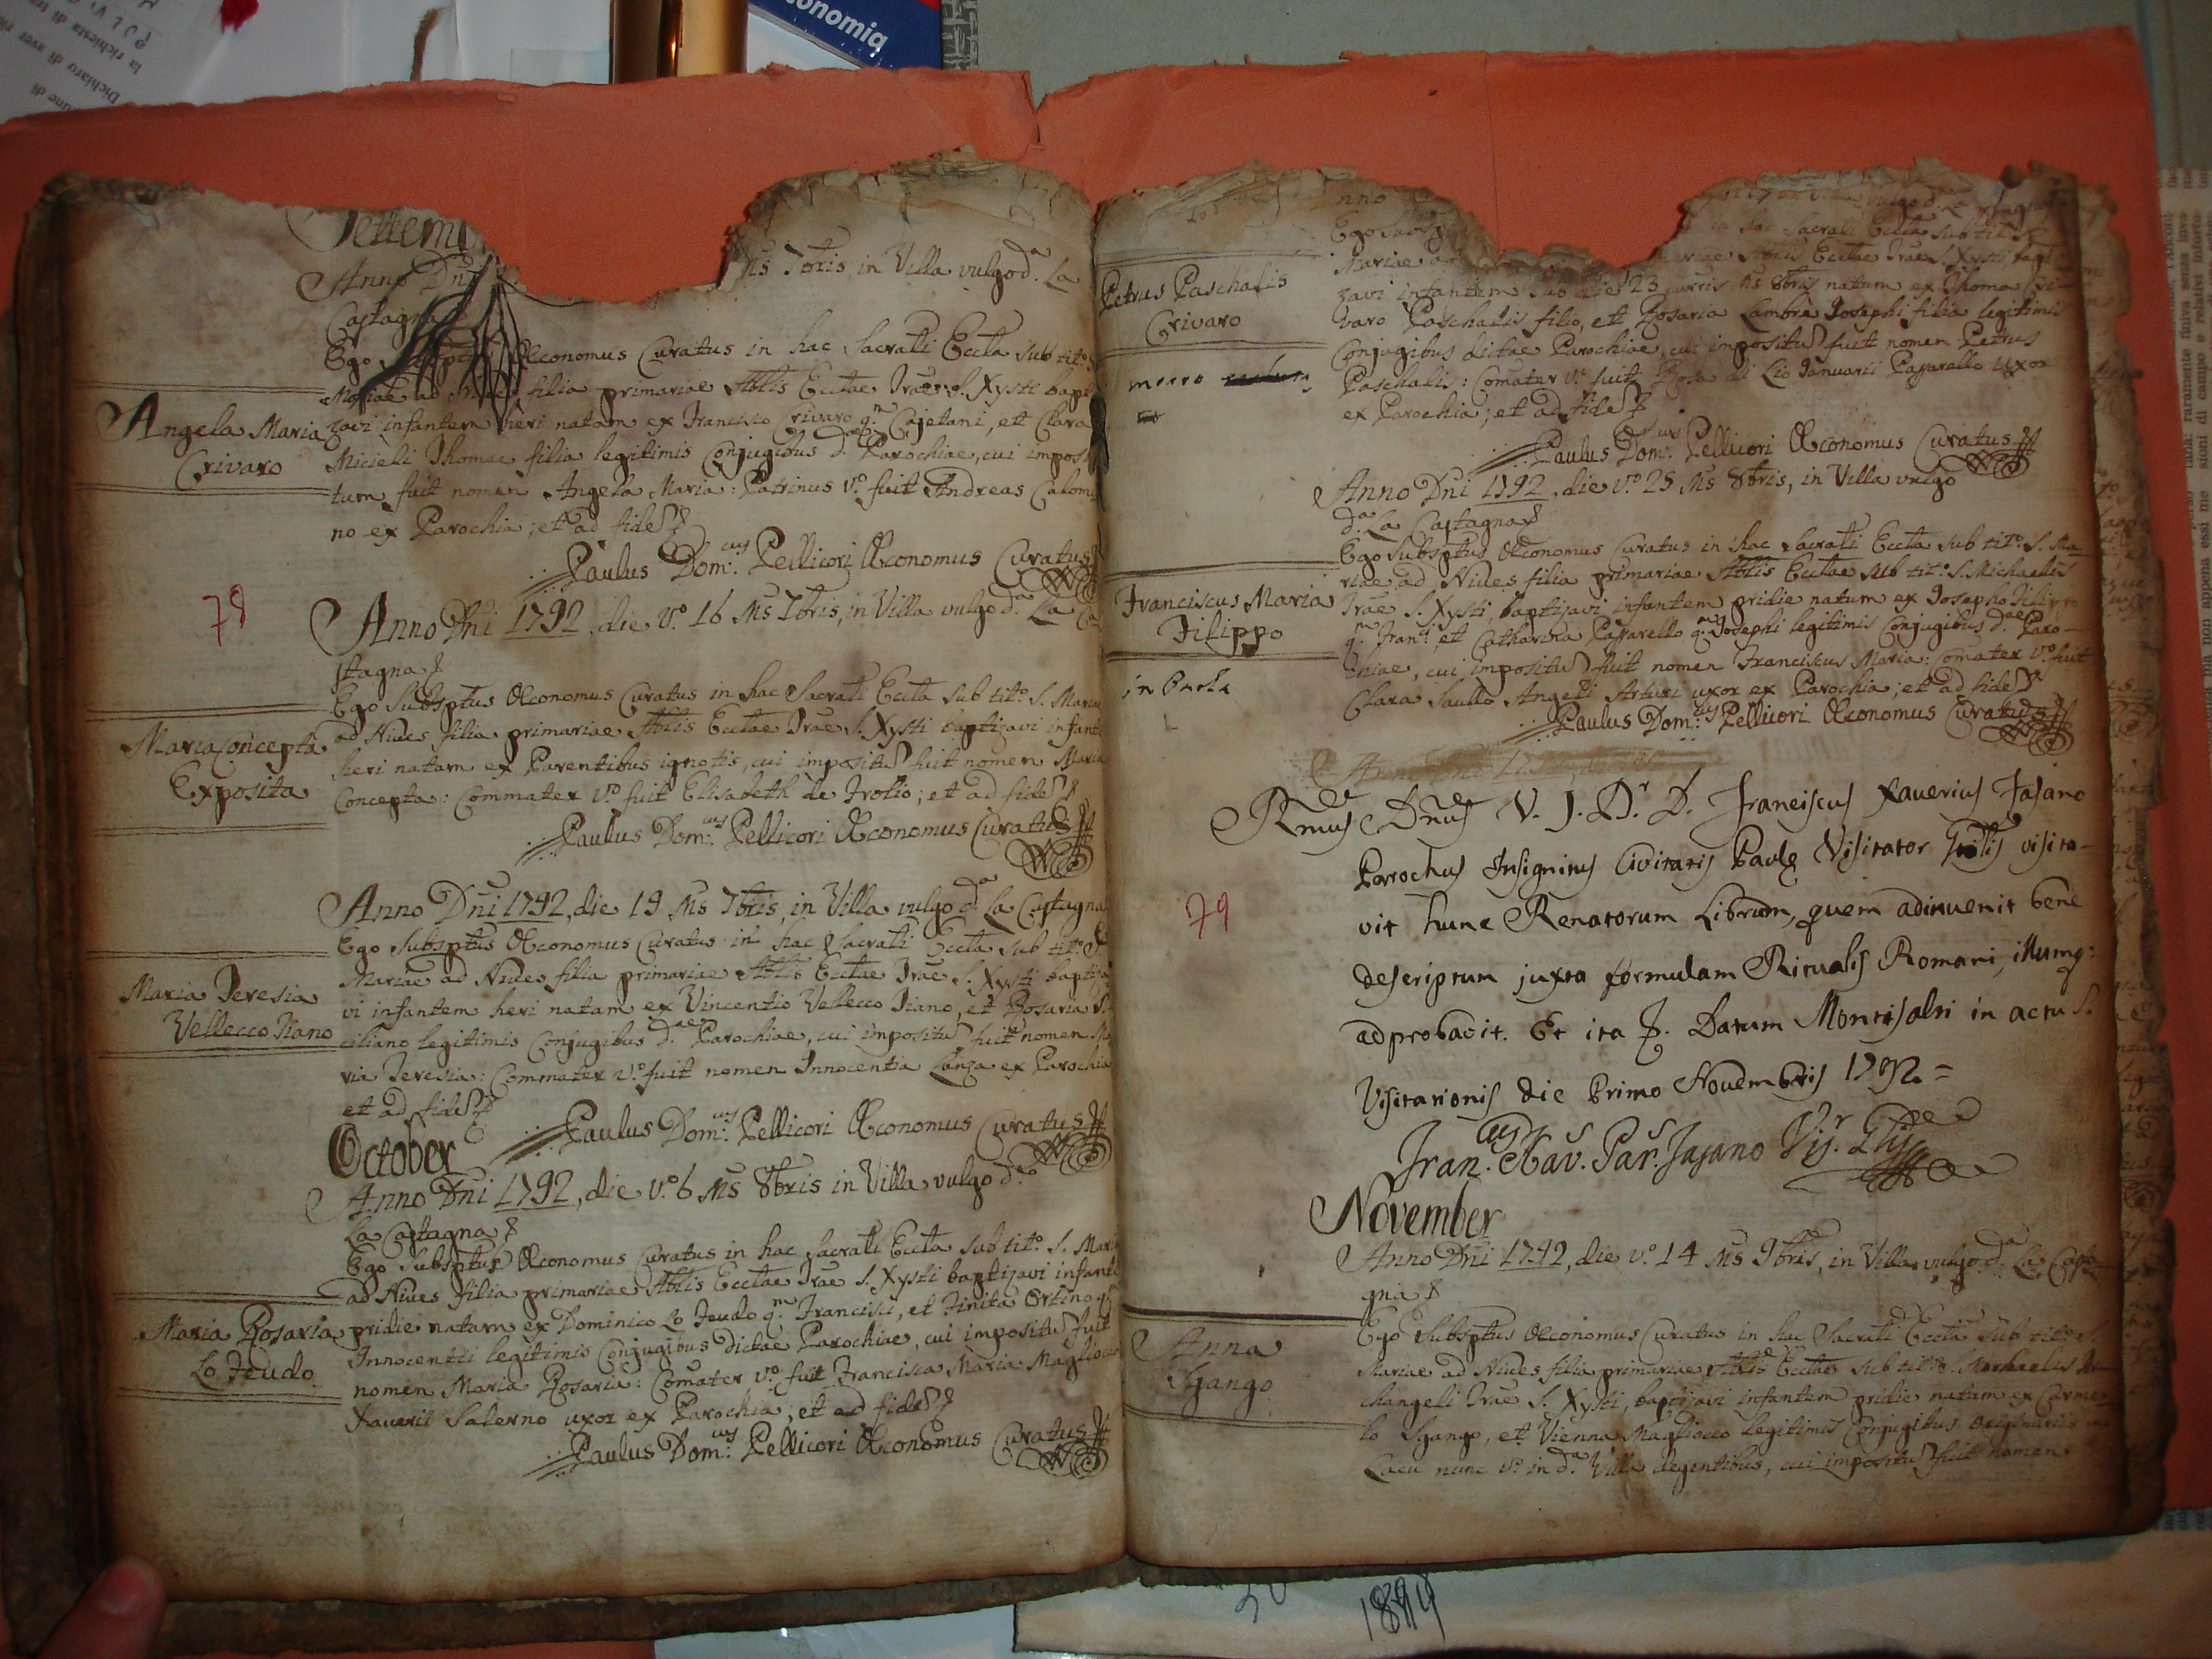 onomiq
Settem
Anno Dni
Ms 7bris in Villa vulgo d.a La
Castagna
Ego
Œconomus Curatus in hac Sacrali Eccla sub tit.o S.
Mariae ad Nives filia primariae Ablis Ecclae Trae S. Xysti bapti
Angela Maria
Crivaro
zavi infantem heri natam ex Francisco Crivaro q.m Cajetani, et Clara
Micieli Thomae filia legitimis Conjugibus d.ae Parochiae, cui imposi
tum fuit nomen Angela Maria: Patrinus v.o fuit Andreas Calomi
no ex Parochia; et ad fide
Paulus Dom.cus Pellicori Œconomus Curatus
78
Anno Dni 1792, die v.o 16 Ms 7bris, in Villa vulgo d.a La Ca
stagna
Ego Subsptus Œconomus Curatus in hac Sacrali Eccla sub tit.o S. Mariae
ad Nives filia primariae Ablis Ecclae Trae S. Xysti baptizavi infante
Maria Concepta
Exposita
heri natam ex Parentibus ignotis, cui impositu fuit nomen Maria
Concepta: Commater v.o fuit Elisabeth de Trolio; et ad fide
Paulus Dom.cus Pellicori Œconomus Curatus
Anno Dni 1792, die 19 Ms 7bris, in Villa vulgo d.a La Castagna
Ego Subsptus Œconomus Curatus in hac Sacrali Eccla sub tit.o S.
Mariae ad Nives filia primariae Ablis Ecclae Trae S. Xysti baptiza
Maria Teresia
Vellecco Iiano
vi infantem heri natam ex Vincentio Vellecco Iiano, et Rosaria
ciliano legitimis Conjugibus d.ae Parochiae, cui impositu fuit nomen Ma
ria Teresia: Commater v.o fuit nomen Innocentia Lanza ex Parochia
et ad fide
Paulus Dom.cus Pellicori Œconomus Curatus
October
Anno Dni 1792, die v.o 6 Ms 8bris in Villa vulgo d.a
La Castagna
Ego Subsptus Œconomus Curatus in hac Sacrali Eccla sub tit.o S. Maria
ad Nives filia primariae Ablis Ecclae Trae S. Xysti baptizavi infante
Maria Rosaria
Lo Feudo
pridie natam ex Dominico Lo Feudo q.m Francisci, et Finita Ortino q.m
Innocentii legitimis Conjugibus dictae Parochiae, cui impositu fuit
nomen Maria Rosaria: Comater v.o fuit Francisca Maria Magliocco
Xaverii Salerno uxor ex Parochia; et ad fide
Paulus Dom.cus Pellicori Œconomus Curatus
nno
Ego Subsp
in hac Sacrali Eccla sub tit.o S.
Mariae
Ablis Ecclae Trae S. Xysti, bapti
Petrus Paschalis
Crivaro
zavi infantem sub die 23 curris Ms 8bris natum ex Thoma Cri
varo Paschalis filio, et Rosaria Lambre Josephi filia legitimis
Conjugibus dictae Parochiae, cui impositu fuit nomen Petrus
morto
Paschalis: Comater v.o fuit Rosa di Lio Januarii Passarello uxor
ex Parochia; et ad fide
Paulus Dom.cus Pellicori Œconomus Curatus
Anno Dni 1792, die v.o 25 Ms 8bris, in Villa vulgo
d.a La Castagna
Ego Subsptus Œconomus Curatus in hac Sacrali Eccla sub tit.o S. Ma
riae ad Nives filia primariae Ablis Ecclae sub tit.o S. Michaelis
Franciscus Maria
Filippo
Trae S. Xysti, baptizavi infantem pridie natum ex Josepho Filippo
q.m Fran.ci, et Catharina Passarello q.m Josephi legitimis Conjugibus d.ae Paro
chiae, cui impositu fuit nomen Franciscus Maria: Comater v.o fuit
Clara Saullo Angeli Arturi uxor ex Parochia; et ad fide
Paulus Dom.cus Pellicori Œconomus Curatus
Rmus Dnus V. J. D.r D. Franciscus Xaverius Fasano
Parochus Insignitus Civitatis Paulę Visitator Gnlis visita-
79
vit hunc Renatorum Librum, quem adinvenit bene
descriptum juxta formulam Ritualis Romani, illumq:
adprobavit. Et ita Datum Montisalti in actu S.
Visitationis die Primo Novembris 1792 =
Fran.cus Xav.s Par.s Fasano Vis.r Glis
November
Anno Dni 1792, die v.o 14 Ms 9bris, in Villa vulgo d.a La Casta
gna
Anna
Sgango
Ego Subsptus Œconomus Curatus in hac Sacrali Eccla sub tit.o S.
Mariae ad Nives filia primariae Ablis Ecclae sub tit.o S. Michaelis Ar
changeli Trae S. Xysti, baptizavi infantem pridie natam ex Carme
lo Sgango, et Vienna Magliocco legitimis Conjugibus originariis a
Lacu nunc v.o in d.a Villa degentibus, cui impositu fuit nomen
1899